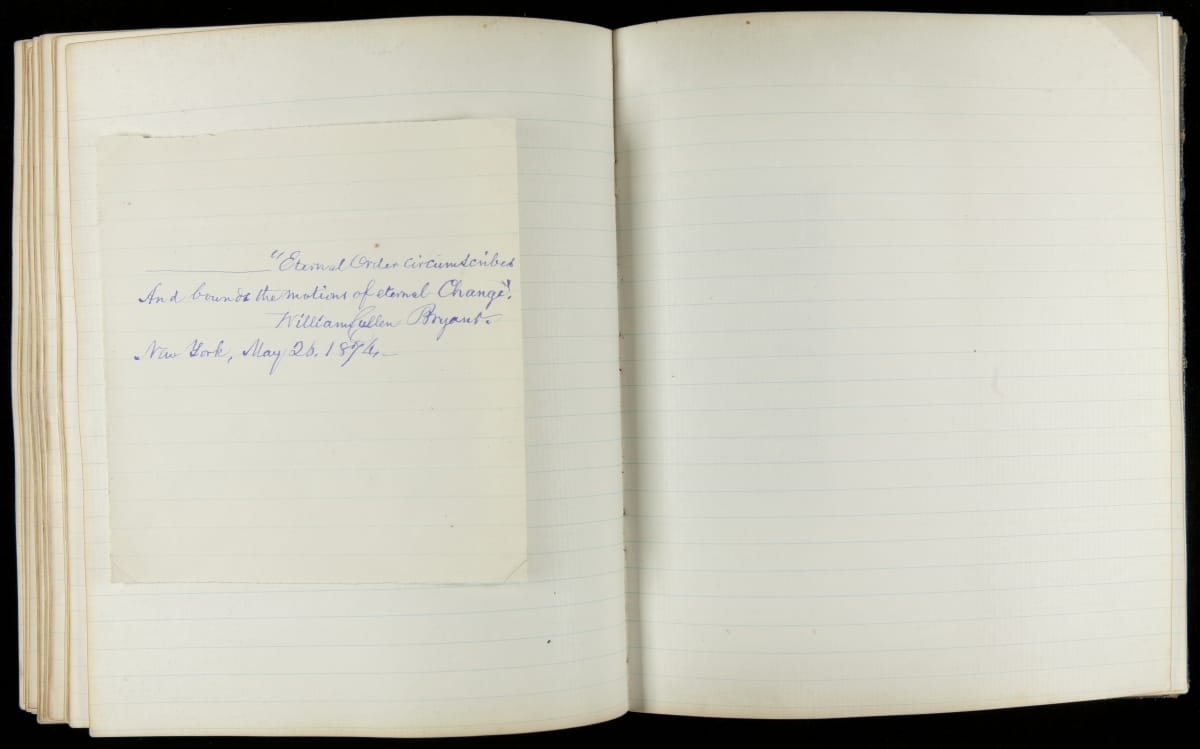 "Eternal Order circumscribes
And bounds the motions of eternal Change".
William Cullen Bryant.
New York, May 26. 1874.